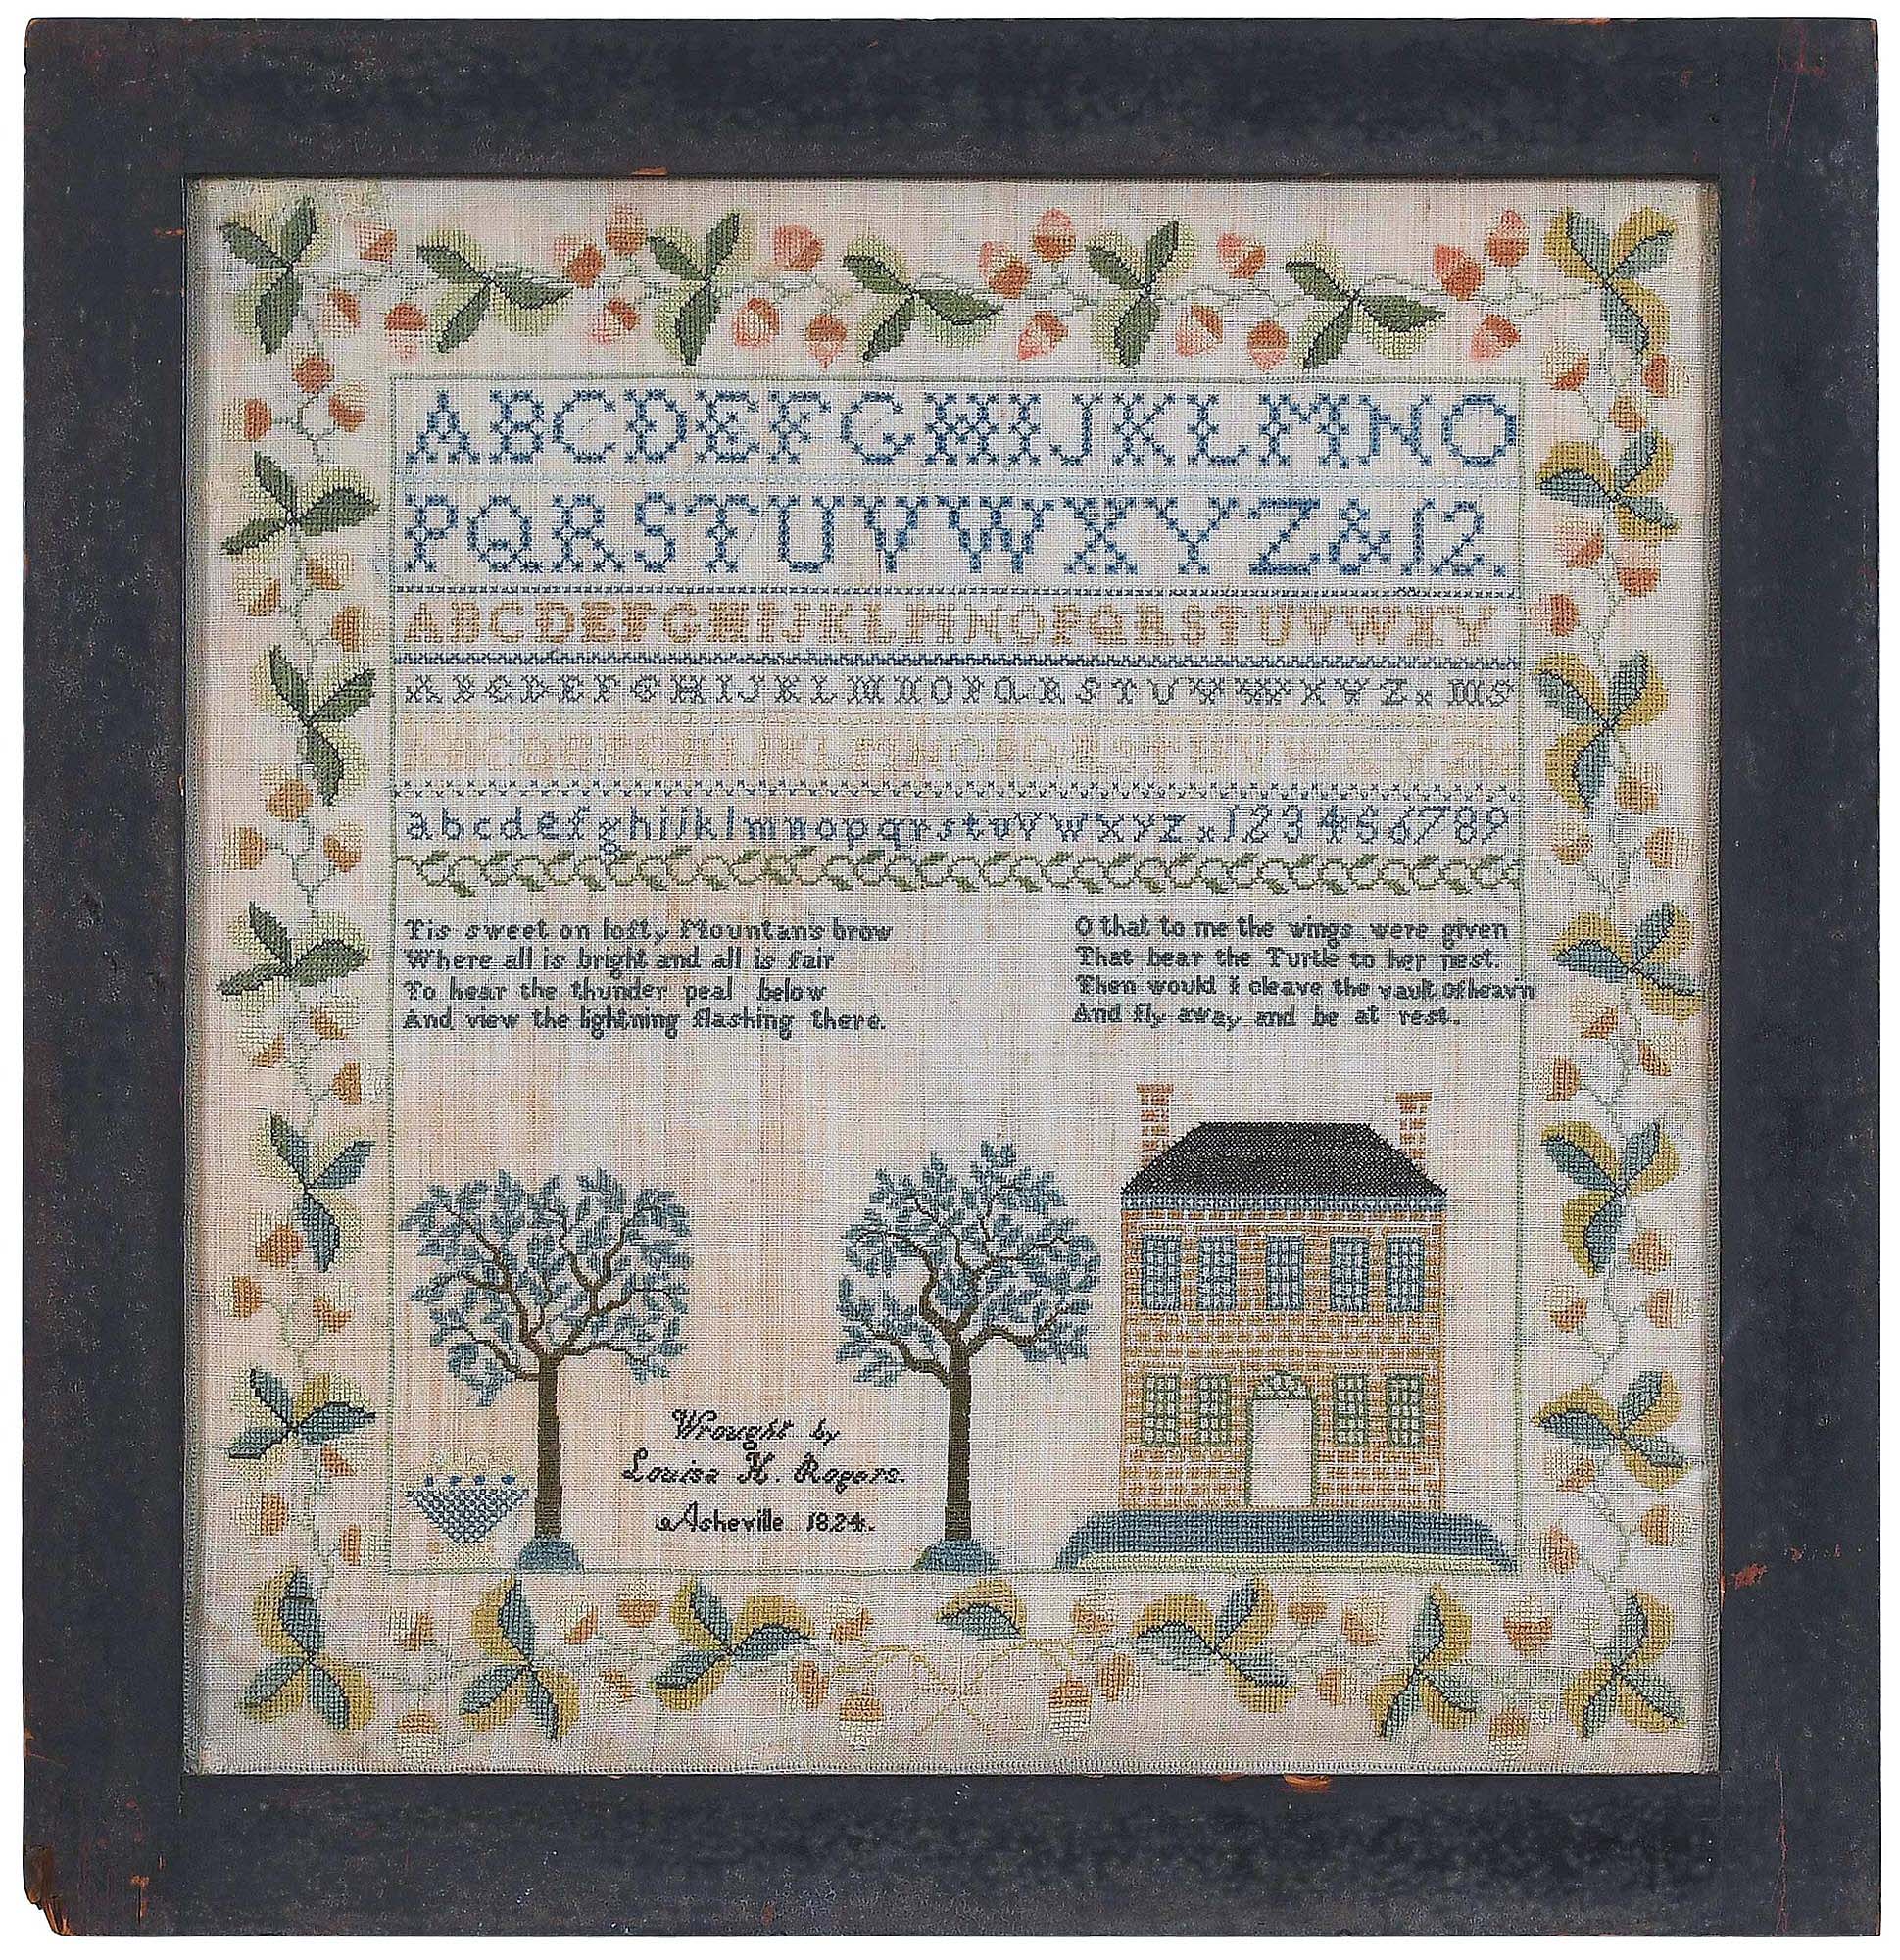 ABCDEFGHIJKLMNO
PQRSTUVWXYZ&12.
ABCDEFGHIJKLMNOPQRSTUVWXY
ABCDEFGHIJKLMNOPQRSTUVWXYZx M5
abcdefghijklmnopqrstuvwxyzx123456789
Tis sweet on lofty Mountans brow
Where all is bright and all is fair
To hear the thunder peal below
And view the lightning flashing there.
O that to me the wings were given
That bear the Turtle to her nest.
Then would I cleave the vault of heav'n
And fly away and be at rest.
Wrought by
Louisa H. Rogers.
Asheville 1824.